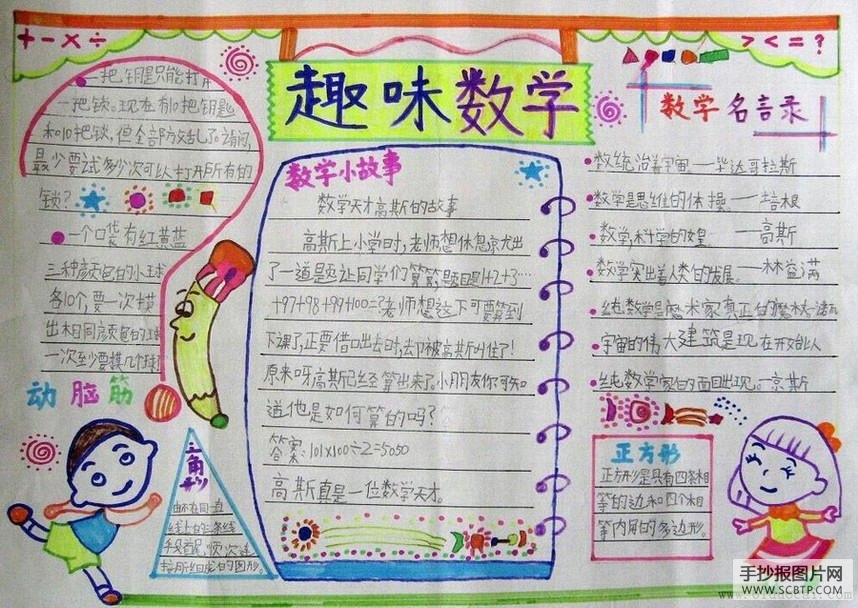 + - × ÷
> < = ?
趣味数学
一把钥匙只能打开
一把锁。现在有10把钥匙
和10把锁,但全部放乱了。请问,
最少要试多少次可以打开所有的
锁?
一个口袋有红黄蓝
三种颜色的小球
各10个,要一次摸
出相同颜色的球
一次至少要摸几个球
动脑筋
三角形
由不在同一直
线上的三条线
段首尾顺次连
接所组成的图形。
数学小故事
数学天才高斯的故事
高斯上小学时,老师想休息就出
了一道题让同学们算算,题目是1+2+3…
+97+98+99+100=?老师想这下可要算到
下课了,正要借口出去时,却被高斯叫住了!
原来呀高斯已经算出来了。小朋友你可知
道他是如何算的吗?
答案:101×100÷2=5050
高斯真是一位数学天才。
数学名言录
数统治着宇宙。——毕达哥拉斯
数学是思维的体操。——培根
数学,科学的女皇——高斯
数学突出着人类的发展。——林益满
纯数学是魔术家真正的魔杖
宇宙的伟大建筑是现在开创以
纯数学家的面目出现。京斯
正方形
正方形是具有四条相
等的边和四个相
等内角的多边形。
手抄报图片网
WWW.SCBTP.COM